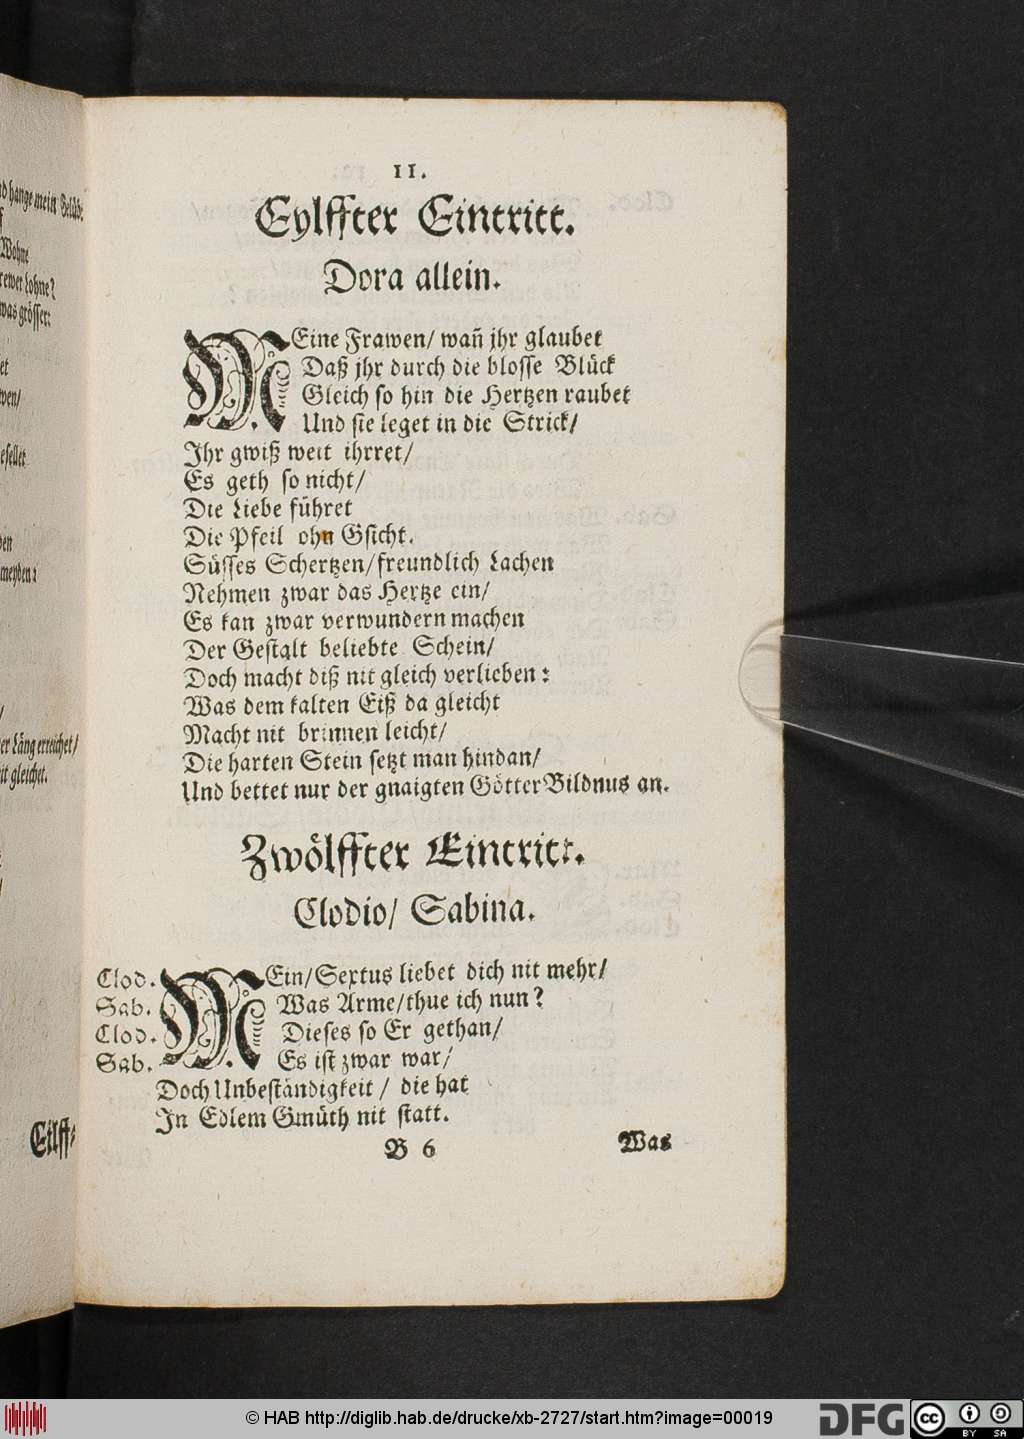 11.
Eylffter Eintritt.
Dora allein.
MEine Frawen/ wañ jhr glaubet
Daß jhr durch die blosse Blück
Gleich so hin die Hertzen raubet
Und sie leget in die Strick/
Jhr gwiß weit ihrret/
Es geth so nicht/
Die Liebe führet
Die Pfeil ohn Gsicht.
Süsses Schertzen/freundlich Lachen
Nehmen zwar das Hertze ein/
Es kan zwar verwundern machen
Der Gestalt beliebte Schein/
Doch macht diß nit gleich verlieben:
Was dem kalten Eiß da gleicht
Macht nit brinnen leicht/
Die harten Stein setzt man hindan/
Und bettet nur der gnaigten Götter Bildnus an.
Zwölffter Eintritt.
Clodio/ Sabina.
Clod. MEin/Sextus liebet dich nit mehr/
Sab. Was Arme/thue ich nun?
Clod. Dieses so Er gethan/
Sab. Es ist zwar war/
Doch Unbeständigkeit / die hat
Jn Edlem Gmüth nit statt.
B 6 Was
Wohne
rewer Lohne?
was grösser:
esellet
meyden:
er Läng erreichet/
it gleichet.
Eilff-
© HAB http://diglib.hab.de/drucke/xb-2727/start.htm?image=00019
DFG
cc
BY SA